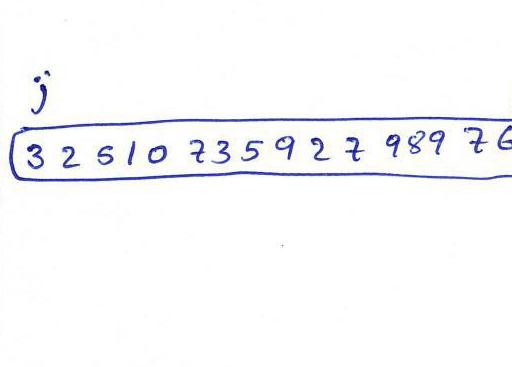 3 2 5 1 0 7 3 5 9 2 7 9 8 9 7 6